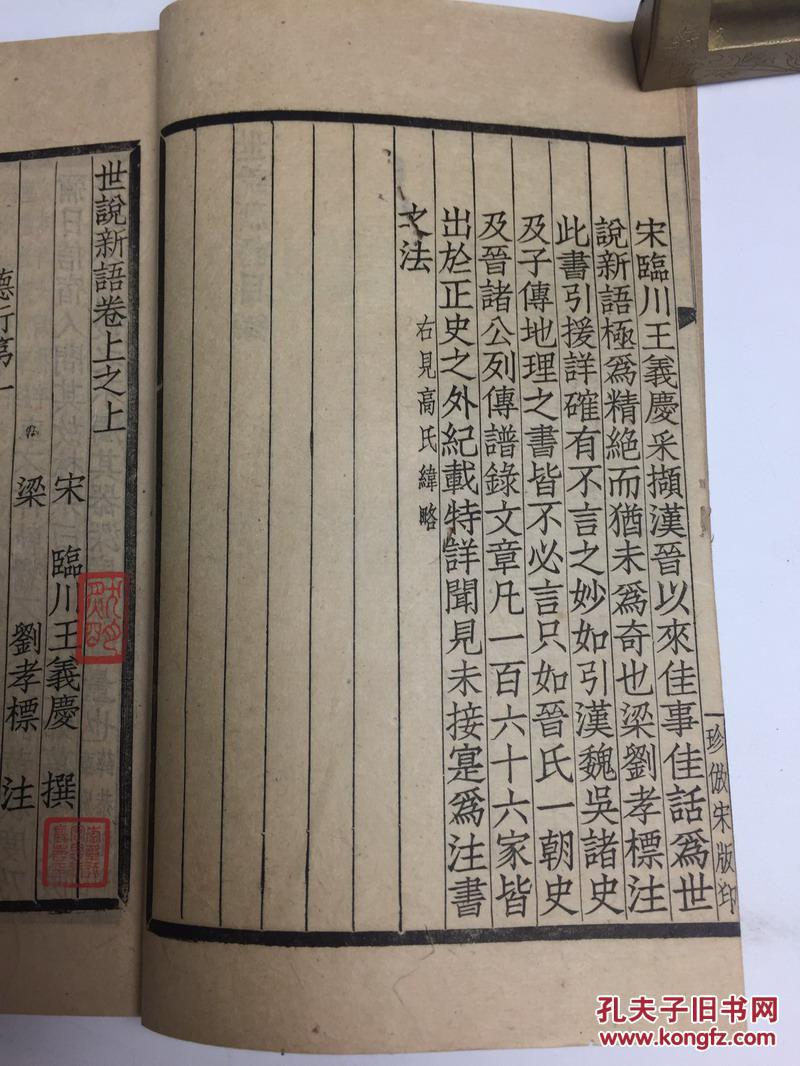 珍倣宋版印
宋臨川王義慶采擷漢晉以來佳事佳話爲世
說新語極爲精絕而猶未爲奇也梁劉孝標注
此書引援詳確有不言之妙如引漢魏吳諸史
及子傳地理之書皆不必言只如晉氏一朝史
及晉諸公列傳譜錄文章凡一百六十六家皆
出於正史之外紀載特詳聞見未接寔爲注書
之法
右見高氏緯略
世說新語卷上之上
宋 臨川王義慶 撰
梁 劉孝標 注
德行第一
孔夫子旧书网
www.kongfz.com